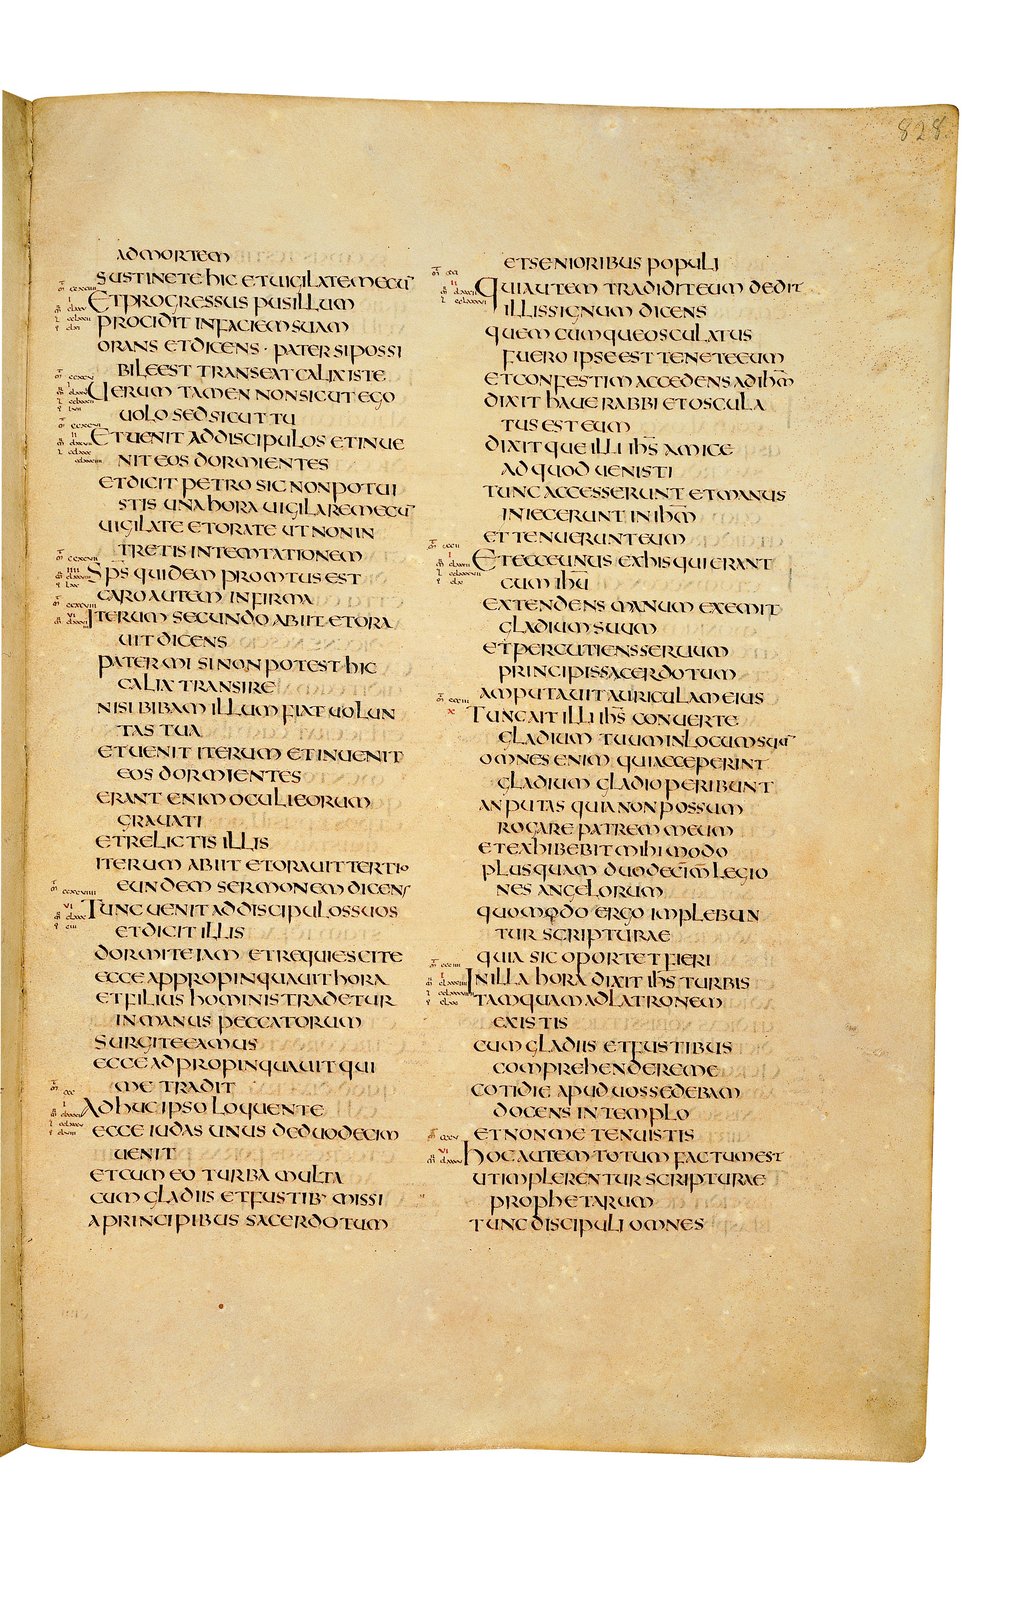 828
ADMORTEM
SUSTINETE HIC ETUIGILATEMECU̅
ETPROGRESSUS PUSILLUM
PROCIDIT INFACIEMSUAM
ORANS ETDICENS · PATERSIPOSSI
BILEEST TRANSEATCALIXISTE
UERUM TAMEN NONSICUTEGO
UOLO SEDSICUT TU
ETUENIT ADDISCIPULOS ETINUE
NITEOS DORMIENTES
ETDICIT PETRO SIC NONPOTUI
STIS UNAHORA UIGILAREMECU̅
UIGILATE ETORATE UTNONIN
TRETIS INTEMTATIONEM
SP̅S QUIDEM PROMTUS EST
CAROAUTEM INFIRMA
ITERUM SECUNDO ABIIT ETORA
UIT DICENS
PATERMI SINONPOTEST HIC
CALIX TRANSIRE
NISI BIBAM ILLUM FIAT UOLUN
TAS TUA
ETUENIT ITERUM ETINUENIT
EOS DORMIENTES
ERANT ENIMOCULIEORUM
GRAUATI
ETRELICTIS ILLIS
ITERUM ABIIT ETORAUITTERTIO
EUNDEM SERMONEM DICENS
TUNC UENIT ADDISCIPULOSSUOS
ETDICIT ILLIS
DORMITEIAM ETREQUIESCITE
ECCEAPPROPINQUAUITHORA
ETFILIUS HOMINISTRADETUR
INMANUS PECCATORUM
SURGITEEAMUS
ECCE ADPROPINQUAUIT QUI
ME TRADIT
ADHUCIPSO LOQUENTE
ECCE IUDAS UNUS DEDUODECIM
UENIT
ETCUM EO TURBA MULTA
CUM GLADIIS ETFUSTIB· MISSI
APRINCIPIBUS SACERDOTUM
ETSENIORIBUS POPULI
QUIAUTEM TRADIDITEUM DEDIT
ILLISSIGNUM DICENS
QUEM CUMQUEOSCULATUS
FUERO IPSEEST TENETEEUM
ETCONFESTIM ACCEDENSADIHM̅
DIXIT HAUE RABBI ETOSCULA
TUS ESTEUM
DIXITQUEILLI IHS̅ AMICE
AD QUOD UENISTI
TUNC ACCESSERUNT ETMANUS
INIECERUNT IN IHM̅
ET TENUERUNTEUM
ETECCEUNUS EXHISQUIERANT
CUM IHU̅
EXTENDENS MANUM EXEMIT
GLADIUMSUUM
ETPERCUTIENSSERUUM
PRINCIPISSACERDOTUM
AMPUTAUITAURICULAMEIUS
TUNCAIT ILLI IHS̅ CONUERTE
GLADIUM TUUMINLOCUMSUU̅
OMNES ENIM QUIACCEPERINT
GLADIUM GLADIOPERIBUNT
ANPUTAS QUIANONPOSSUM
ROGARE PATREM MEUM
ETEXHIBEBITMIHIMODO
PLUSQUAM DUODECIM̅LEGIO
NES ANGELORUM
QUOMODO ERGO IMPLEBUN
TUR SCRIPTURAE
QUIA SIC OPORTET FIERI
INILLA HORA DIXIT IHS̅ TURBIS
TAMQUAMADLATRONEM
EXISTIS
CUM GLADIIS ETFUSTIBUS
COMPREHENDEREME
COTIDIE APUDUOSSEDEBAM
DOCENS INTEMPLO
ETNONME TENUISTIS
HOCAUTEMTOTUM FACTUMEST
UTIMPLERENTURSCRIPTURAE
PROPHETARUM
TUNCDISCIPULI OMNES